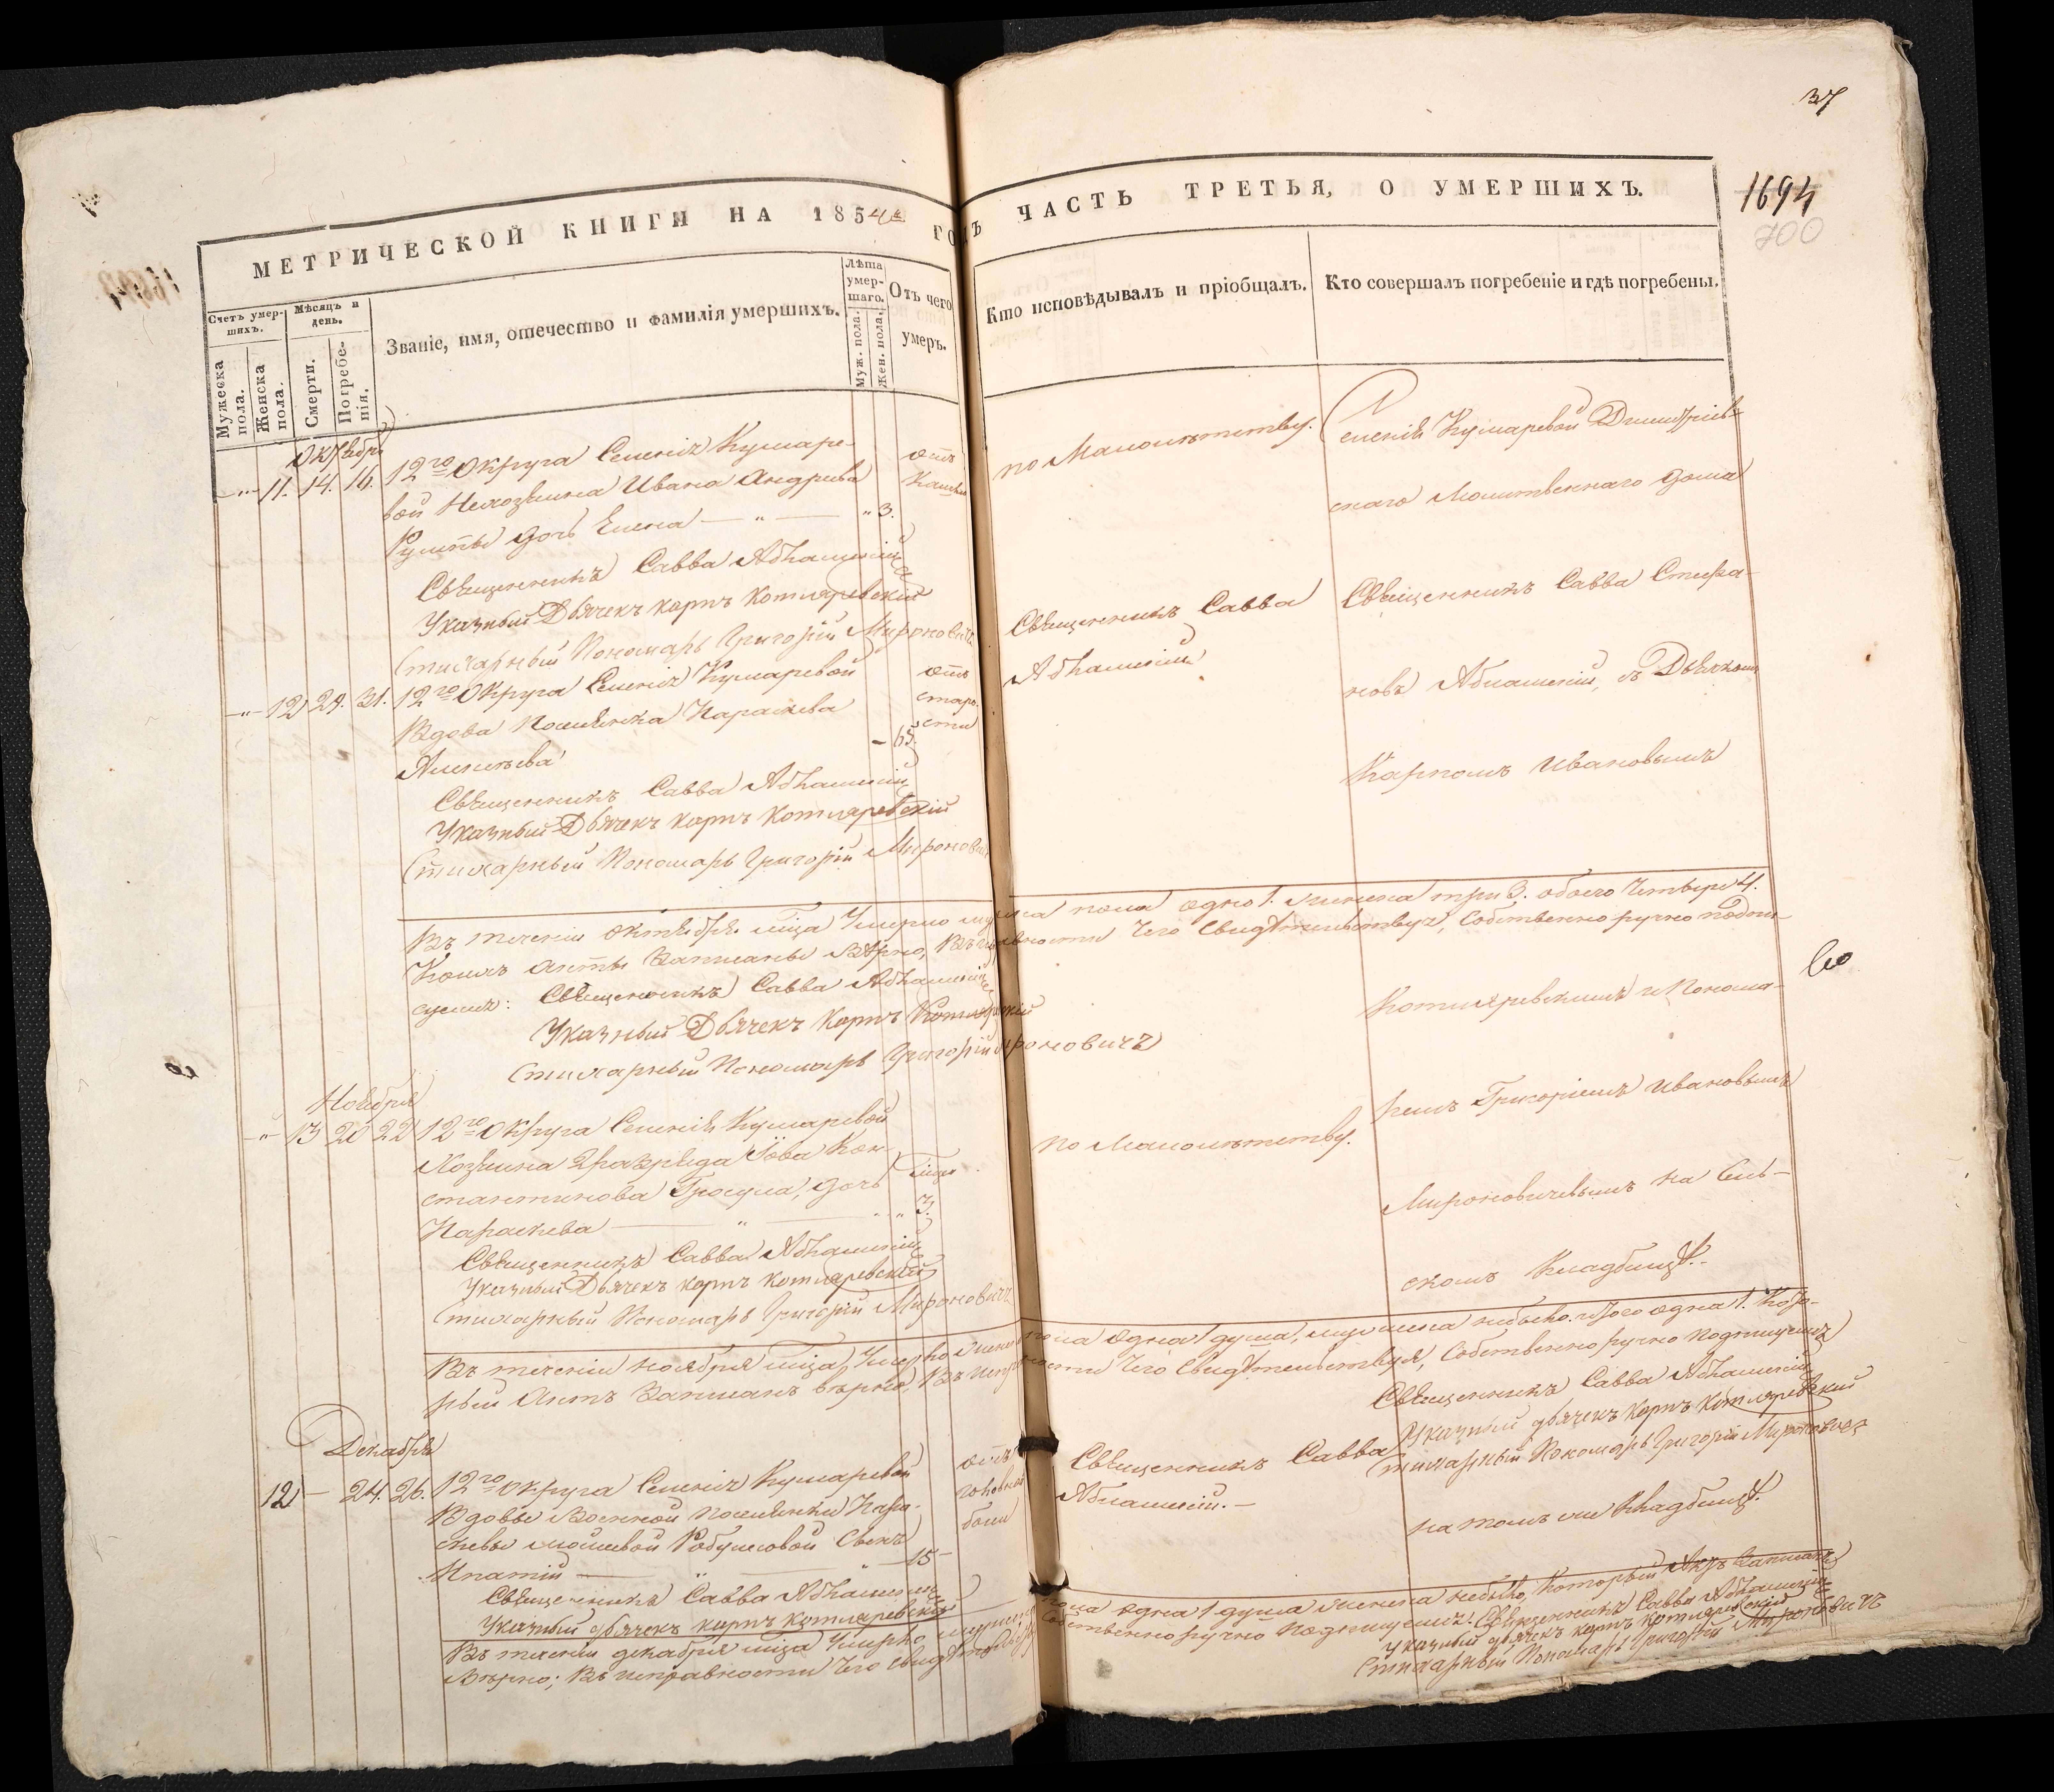 37
1694
700
МЕТРИЧЕСКОЙ КНИГИ НА 1854й ГОДЪ ЧАСТЬ ТРЕТЬЯ, О УМЕРШИХЪ.
Счетъ умершихъ.
Мужеска пола.
Женска пола.
Мѣсяцъ и день.
Смерти.
Погребенія.
Званіе, имя, отечество и фамилія умершихъ.
Лѣта умершаго.
Муж. пола.
Жен. пола.
Отъ чего умеръ.
Кто исповѣдывалъ и пріобщалъ.
Кто совершалъ погребеніе и гдѣ погребены.
Октября
11. 14. 16. 12го Округа Селенія Кумаре-
вой Нехозяина Ивана Андреева
дочь Елена — " — " 3.
отъ
кашля
по Малолѣтству.
Священникъ Савва
Указный Дьячекъ Карпъ Котляревскій
Стихарный Пономарь Григорій Мироновичъ
12 29. 31. 12го Округа Селенія Кумаревой
Вдова Поселянка Параскева
Алексѣева - 65.
отъ
старо-
сти
Священникъ Савва
Священникъ Савва
Указный Дьячекъ Карпъ Котляревскій
Стихарный Пономарь Григорій Мироновичъ
Селенія Кумаревой Димитріев-
скаго Молитвеннаго дома
Священникъ Савва Стефа-
новъ съ Дьячкомъ
Карпомъ Ивановымъ
Котляревскимъ и Понома-
ремъ Григоріемъ Ивановымъ
Мироновичевымъ на Сель-
скомъ Кладбищѣ.
Въ теченіи октября мѣца Умерло мужеска пола одно 1. женска три 3. обоего Четверо 4.
Коихъ акты Записаны Вѣрно, Въ исправности Чего Свидѣтельствуя, Собственноручно подпи-
суемъ: Священникъ Савва
Указный Дьячекъ Карпъ Котляревскій
Стихарный Пономарь Григорій Мироновичъ
Ноября
13 20 22 12го Округа Селенія Кумаревой
Хозяина 2 разряда Іова Кон-
стантинова Гросула, дочь
Параскева — " — " 3.
мѣця
по Малолѣтству.
Священникъ Савва
Указный Дьячекъ Карпъ Котляревскій
Стихарный Пономарь Григорій Мироновичъ
Въ теченіи ноября мѣца Умерло женска пола одна 1 душа, мужеска небыло. Итого одна 1. Кото-
рый Актъ Записанъ вѣрно, Въ исправности Чего Свидѣтельствуя, Собственноручно Подписуемъ
Священникъ Савва
Указный дьячекъ Карпъ Котляревскій
Стихарный Пономарь Григорій Мироновичъ
Декабря
12 — 24. 26. 12го округа Селенія Кумаревой
Вдовы Военной Поселянки Пара-
скевы Сынъ
Ипатій — " — 15 -
отъ
головной
боли
Священникъ Савва
на томъ же Кладбищѣ.
Священникъ Савва
Указный дьячекъ Карпъ Котляревскій
Въ теченіи декабря мѣца Умерло мужеска пола одна 1 душа женска небыло, Который Актъ Записанъ
Вѣрно; Въ исправности Чего Свидѣтельствуя Собственноручно Подписуемъ: Священникъ Савва
Указный дьячекъ Карпъ Котляревскій
Стихарный Пономарь Григорій Мироновичъ